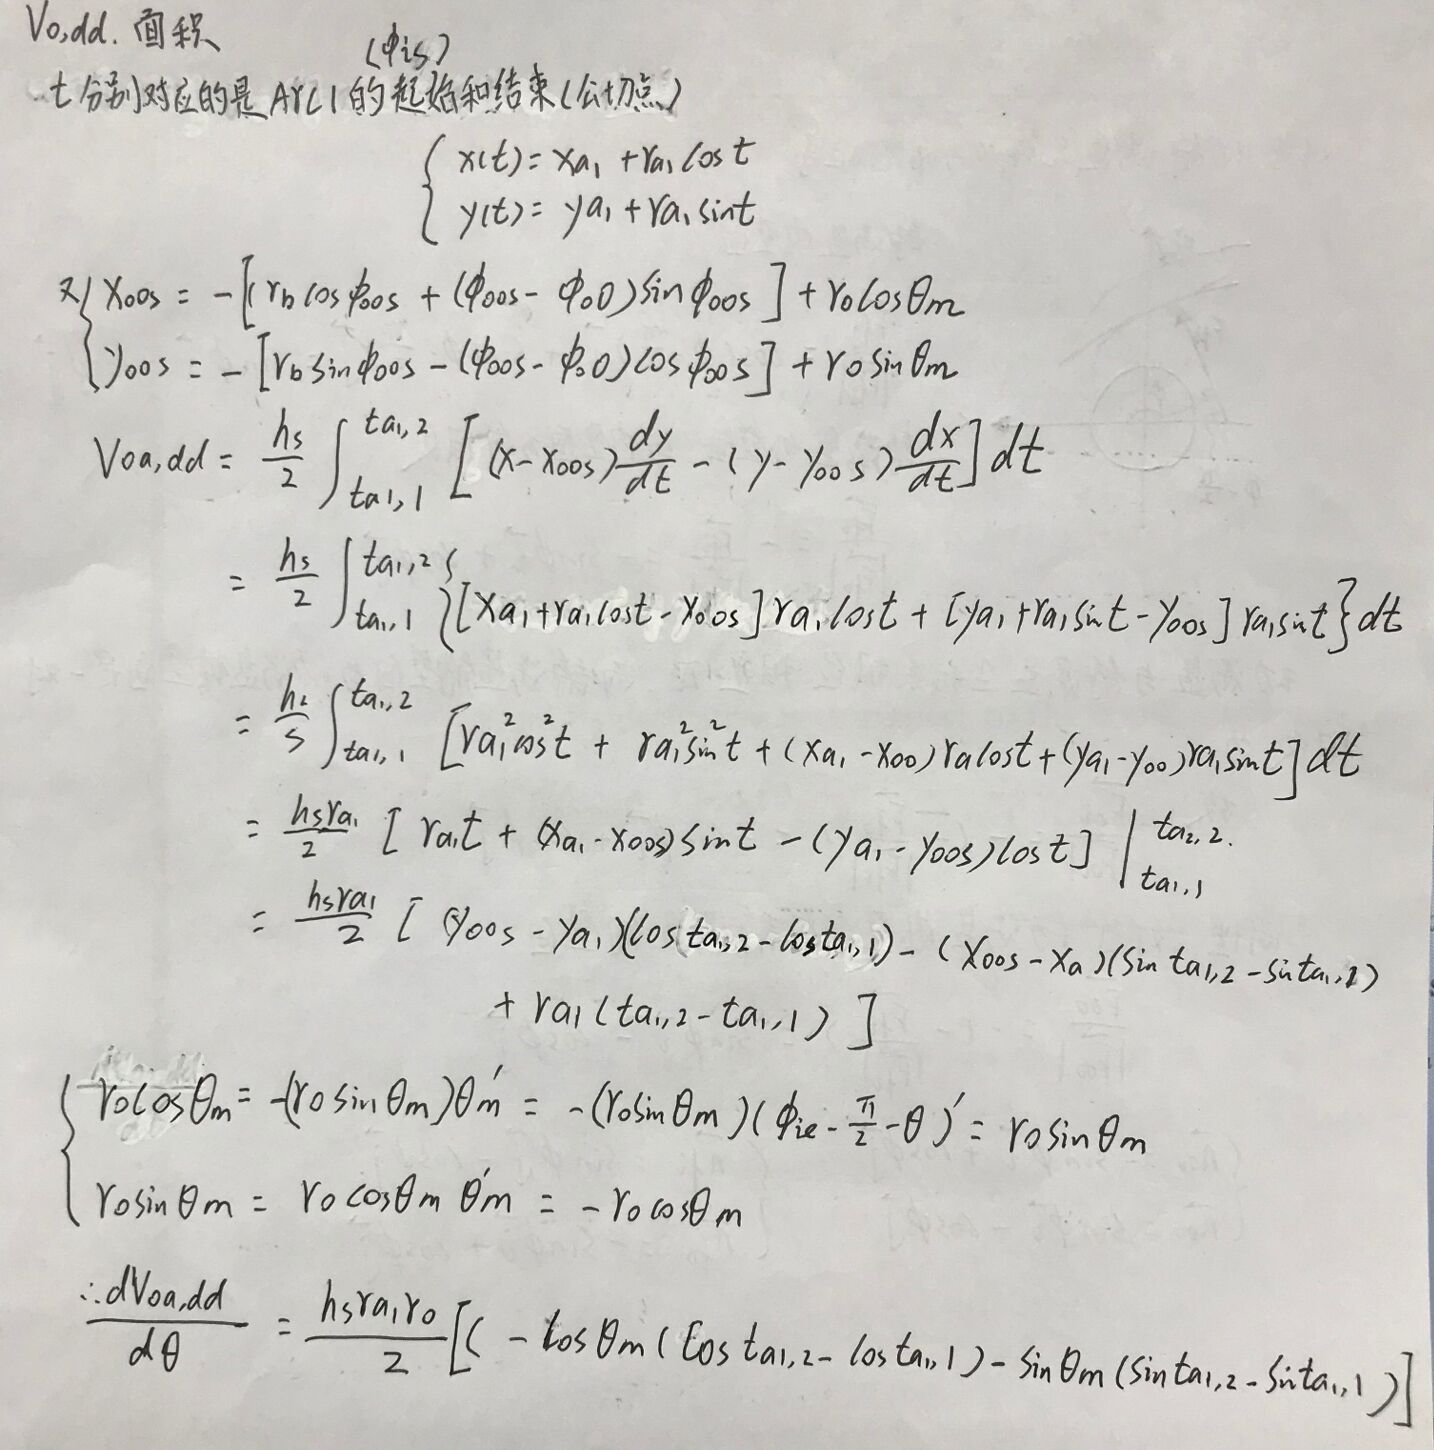 Vo,dd. 面积
(φis)
t分别对应的是Arc1的起始和结束(公切点)
{ x(t) = xa₁ + ra₁ cos t
y(t) = ya₁ + ra₁ sin t
又{ xoos = -[(rb cos φoos + (φoos - φo0) sin φoos] + ro cos θm
yoos = -[rb sin φoos - (φoos - φo0) cos φoos] + ro sin θm
Voa,dd = hs/2 ∫_{ta1,1}^{ta1,2} [(x - xoos) dy/dt - (y - yoos) dx/dt] dt
= hs/2 ∫_{ta1,1}^{ta1,2} {[xa₁ + ra₁ cos t - xoos] ra₁ cos t + [ya₁ + ra₁ sin t - yoos] ra₁ sin t} dt
= hs/s ∫_{ta1,1}^{ta1,2} [ra₁² cos² t + ra₁² sin² t + (xa₁ - xoo) ra cos t + (ya₁ - yoo) ra₁ sin t] dt
= hsra₁/2 [ra₁t + (xa₁ - xoos) sin t - (ya₁ - yoos) cos t] |_{ta1,1}^{ta2,2}.
= hsra1/2 [(yoos - ya₁)(cos ta1,2 - cos ta1,1) - (xoos - xa)(sin ta1,2 - sin ta1,1)
+ ra1 (ta1,2 - ta1,1)]
{ ro cos θm = -(ro sin θm) θm′ = -(ro sin θm)(φie - π/2 - θ)′ = ro sin θm
ro sin θm = ro cos θm θm′ = -ro cos θm
∴ dVoa,dd/dθ = hsra₁ro/2 [( - cos θm (cos ta1,2 - cos ta1,1) - sin θm (sin ta1,2 - sin ta1,1)]